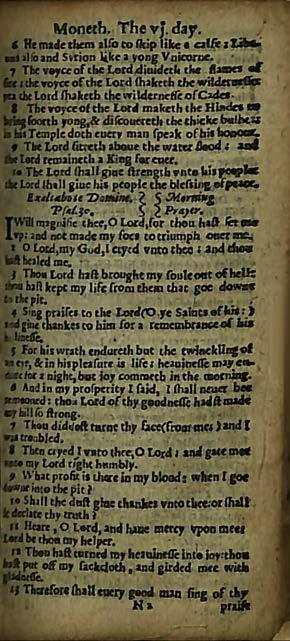 Moneth. The vj. day.
6 He made them also to skip like a calfe: Liba-
nus also and Syrion like a yong Vnicorne.
7 The voyce of the Lord diuideth the flames of
fire: the voyce of the Lord shaketh the wildernesse,
yea the Lord shaketh the wildernesse of Cades.
8 The voyce of the Lord maketh the Hindes to
bring foorth yong, & discouereth the thicke bushes:
in his Temple doth euery man speak of his honour.
9 The Lord sitteth aboue the water flood: and
the Lord remaineth a King for euer.
10 The Lord shall giue strength vnto his people:
the Lord shall giue his people the blessing of peace.
Exaltabo te Domine. Morning
Psal.30. Prayer.
I Will magnifie thee, O Lord, for thou hast set me
vp: and not made my foes to triumph ouer me.
2 O Lord, my God, I cryed vnto thee: and thou
hast healed me.
3 Thou Lord hast brought my soule out of hell:
thou hast kept my life from them that goe downe
to the pit.
4 Sing praises to the Lord (O ye Saints of his:)
and giue thankes to him for a remembrance of his
holinesse.
5 For his wrath endureth but the twinckling of
an eye, & in his pleasure is life: heauinesse may en-
dure for a night, but ioy commeth in the morning.
6 And in my prosperity I said, I shall neuer bee
remooued: thou Lord of thy goodnesse hadst made
my hill so strong.
7 Thou diddest turne thy face (from me:) and I
was troubled.
8 Then cryed I vnto thee, O Lord: and gate mee
vnto my Lord right humbly.
9 What profit is there in my blood: when I goe
downe into the pit?
10 Shall the dust giue thankes vnto thee: or shall
it declare thy truth?
11 Heare, O Lord, and haue mercy vpon mee:
Lord be thou my helper.
12 Thou hast turned my heauinesse into ioy: thou
hast put off my sackcloth, and girded mee with
gladnesse.
13 Therefore shall euery good man sing of thy
N 2 praise